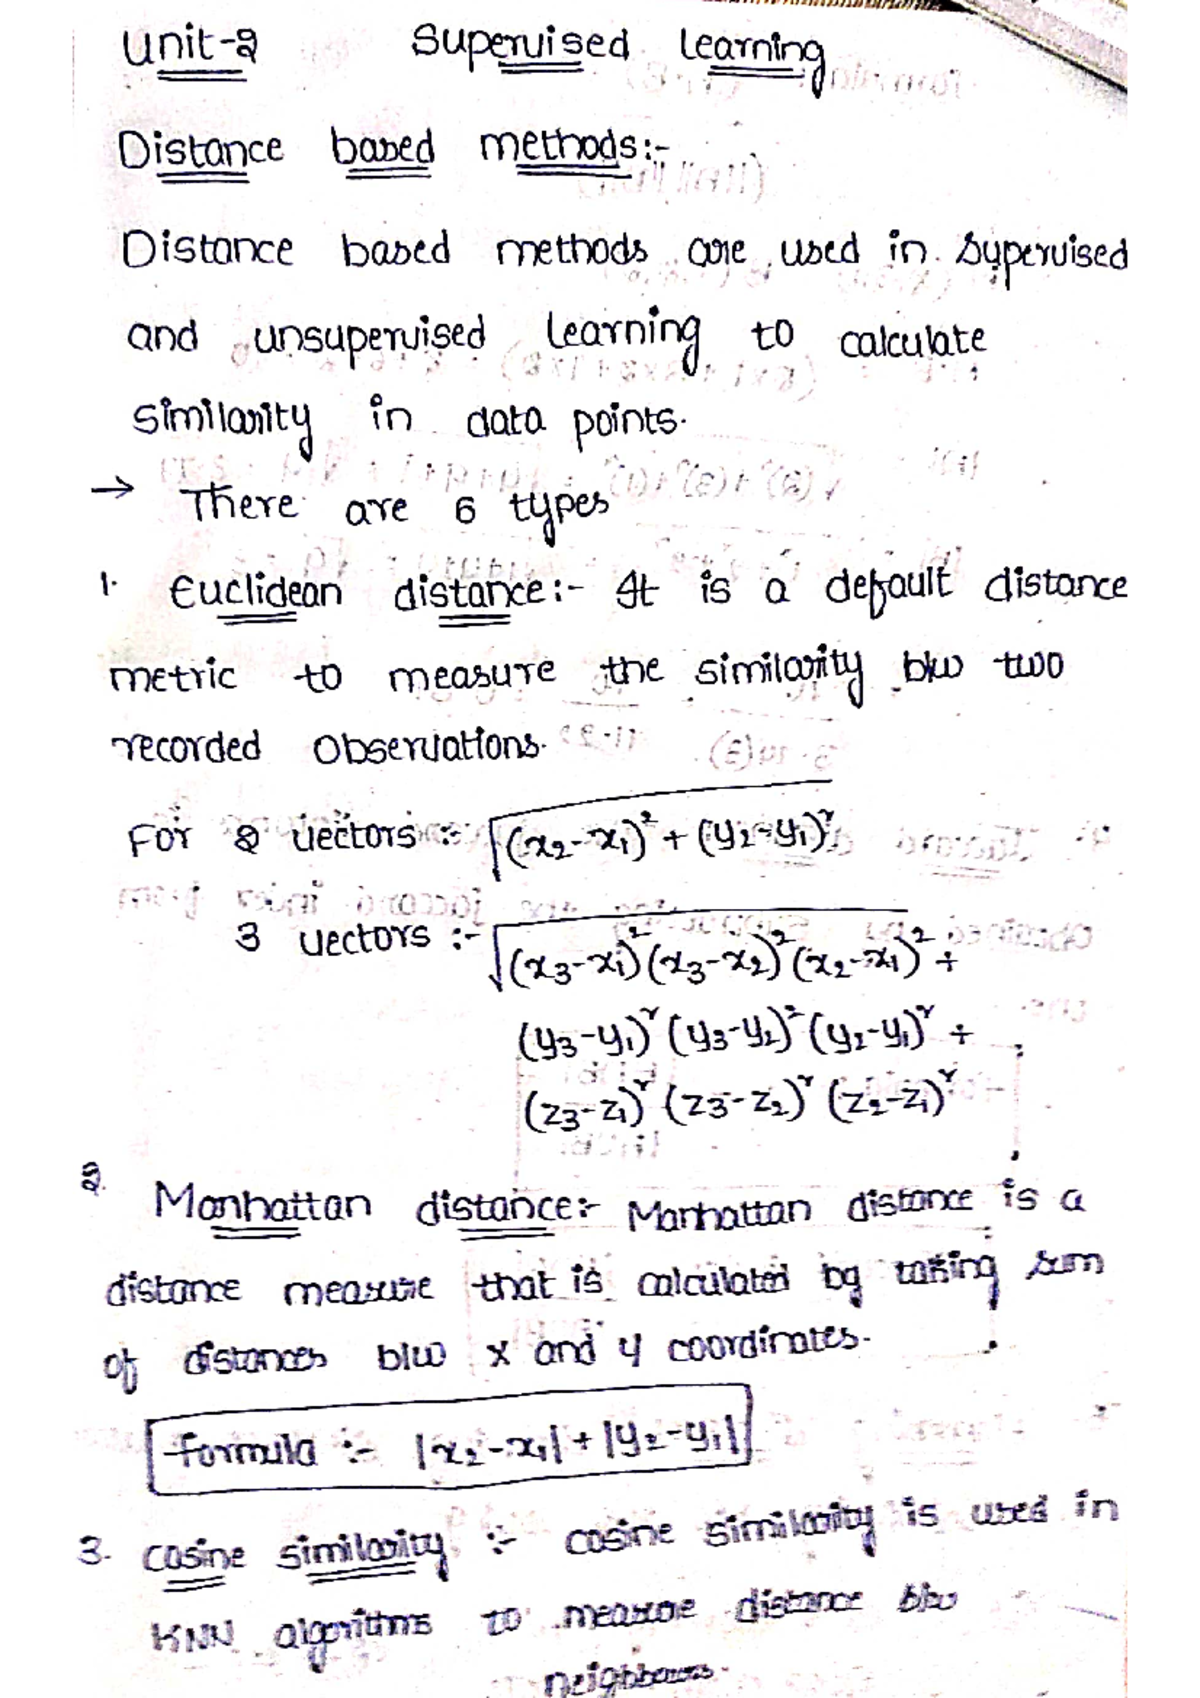 Unit-2 Supervised learning
Distance based methods:-
Distance based methods are used in supervised
and unsupervised learning to calculate
similarity in data points.
→ There are 6 types
1. Euclidean distance:- It is a default distance
metric to measure the similarity b/w two
recorded observations.
For 2 vectors :- √(x₂-x₁)² + (y₂-y₁)²
3 vectors :- √(x₃-x₁)² (x₃-x₂)² (x₂-x₁)² +
(y₃-y₁)² (y₃-y₂)² (y₂-y₁)² +
(z₃-z₁)² (z₃-z₂)² (z₂-z₁)²
2. Manhattan distance:- Manhattan distance is a
distance measure that is calculated by taking sum
of distances b/w x and y coordinates.
Formula :- |x₂-x₁| + |y₂-y₁|
3. Cosine similarity :- cosine similarity is used in
KNN algorithms to measure distance b/w
neighbours.